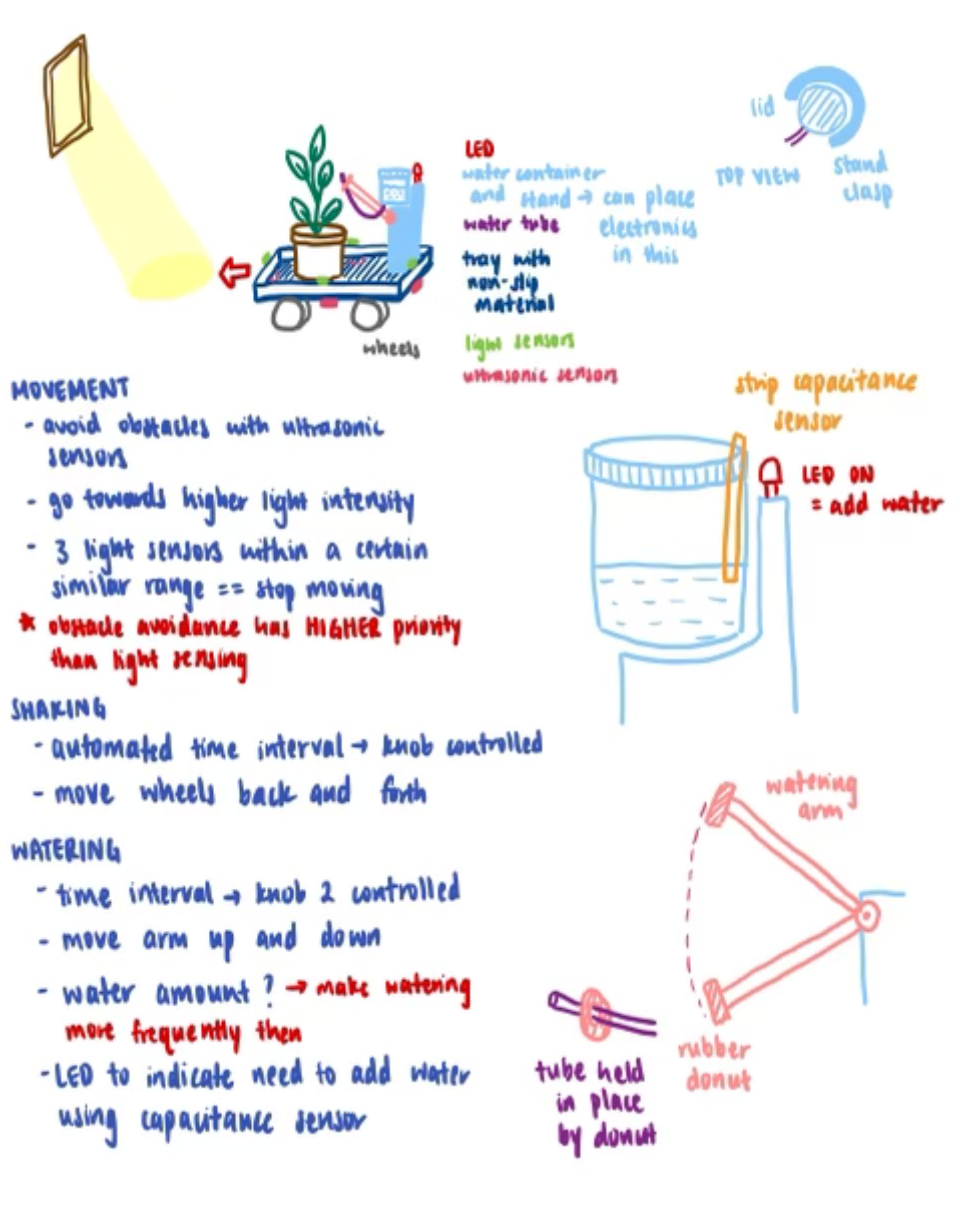 LED
water container
and stand → can place
electronics
in this
water tube
tray with
non-slip
material
light sensors
ultrasonic sensors
wheels
lid
TOP VIEW
stand
clasp
MOVEMENT
- avoid obstacles with ultrasonic
sensors
- go towards higher light intensity
- 3 light sensors within a certain
similar range == stop moving
* obstacle avoidance has HIGHER priority
than light sensing
strip capacitance
sensor
LED ON
= add water
SHAKING
- automated time interval → knob controlled
- move wheels back and forth
WATERING
- time interval → knob 2 controlled
- move arm up and down
- water amount? → make watering
more frequently then
- LED to indicate need to add water
using capacitance sensor
watering
arm
rubber
donut
tube held
in place
by donut